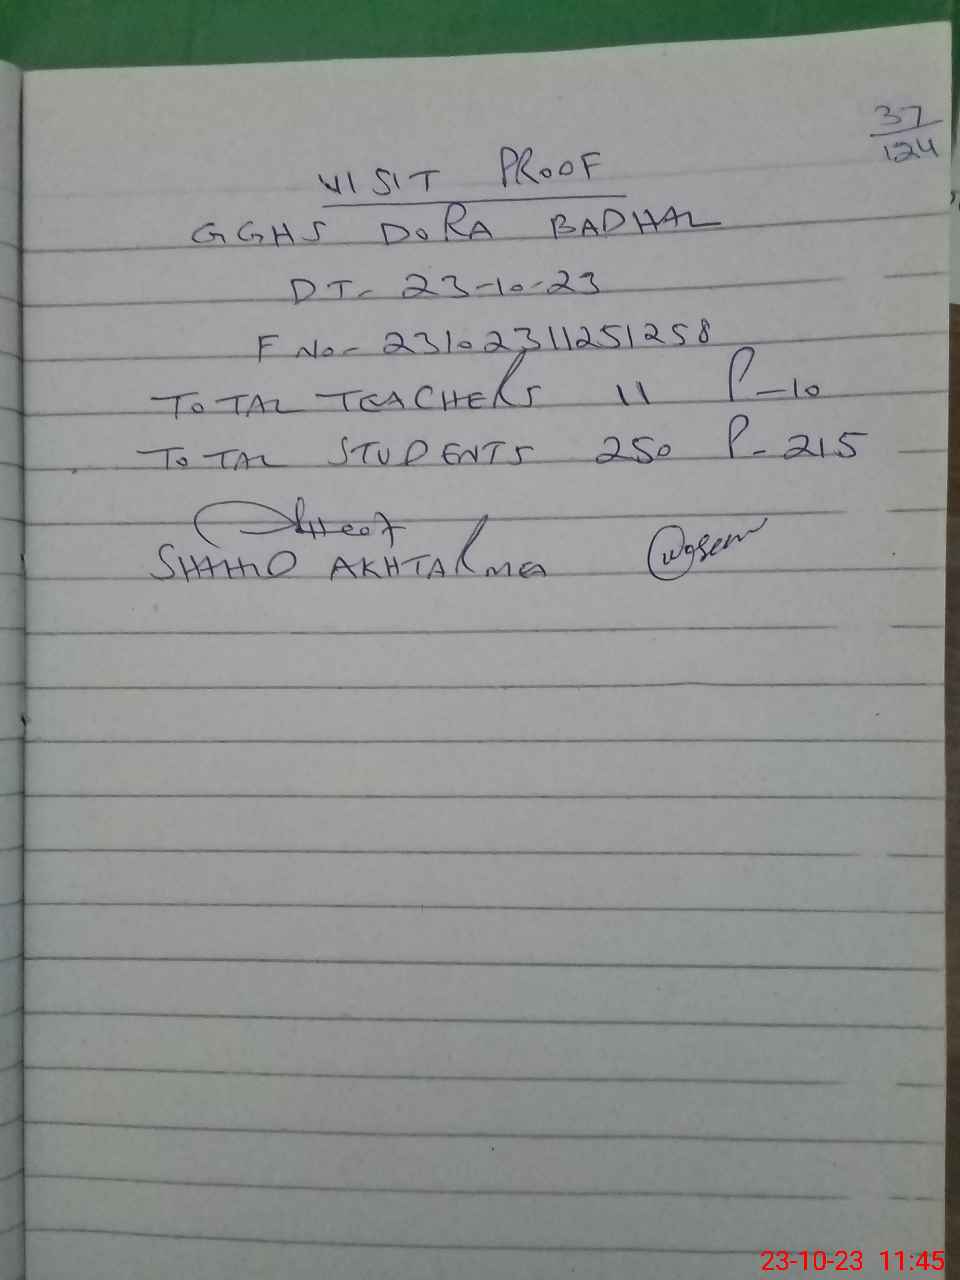 37
124
VISIT PROOF
GGHS DORA BADHAL
DT- 23-10-23
F No- 23102311251258
TOTAL TEACHERS 11 P-10
TOTAL STUDENTS 250 P- 215
AKHTAR MEA
23-10-23 11:45